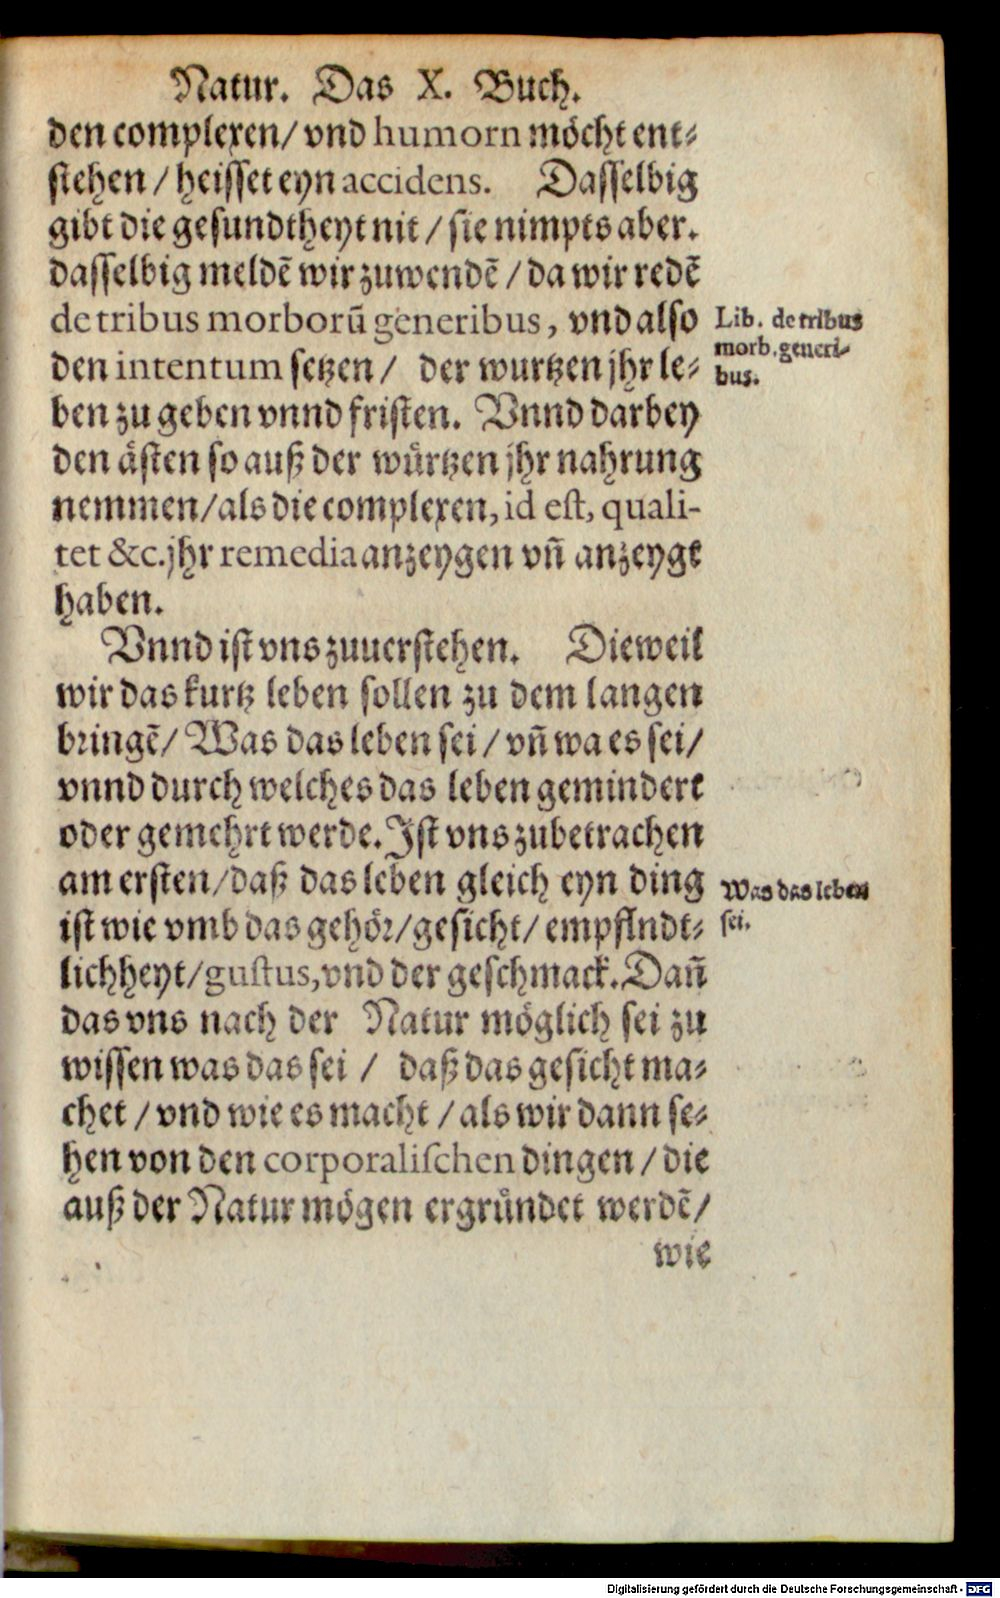 Natur. Das X. Buch.
den complexen/ vnd humorn möcht ent⸗
stehen / heisset eyn accidens. Dasselbig
gibt die gesundtheyt nit / sie nimpts aber.
dasselbig meldē wir zuwendē / da wir redē
de tribus morborū generibus, vnd also
den intentum setzen / der wurtzen jhr le⸗
ben zu geben vnnd fristen. Vnnd darbey
den ästen so auß der würtzen jhr nahrung
nemmen/als die complexen, id est, quali-
tet &c. jhr remedia anzeygen vñ anzeygt
haben.
Vnnd ist vns zuuerstehen. Dieweil
wir das kurtz leben sollen zu dem langen
bringē/ Was das leben sei / vñ wa es sei/
vnnd durch welches das leben gemindert
oder gemehrt werde. Ist vns zubetrachen
am ersten/daß das leben gleich eyn ding
ist wie vmb das gehör/gesicht/ empflndt⸗
lichheyt/gustus,vnd der geschmack. Dañ
das vns nach der Natur möglich sei zu
wissen was das sei / daß das gesicht ma⸗
chet / vnd wie es macht / als wir dann se⸗
hen von den corporalischen dingen / die
auß der Natur mögen ergründet werdē/
wie
Lib. de tribus
morb. generi⸗
bus.
Was das leben
sei.
Digitalisierung gefördert durch die Deutsche Forschungsgemeinschaft - DFG